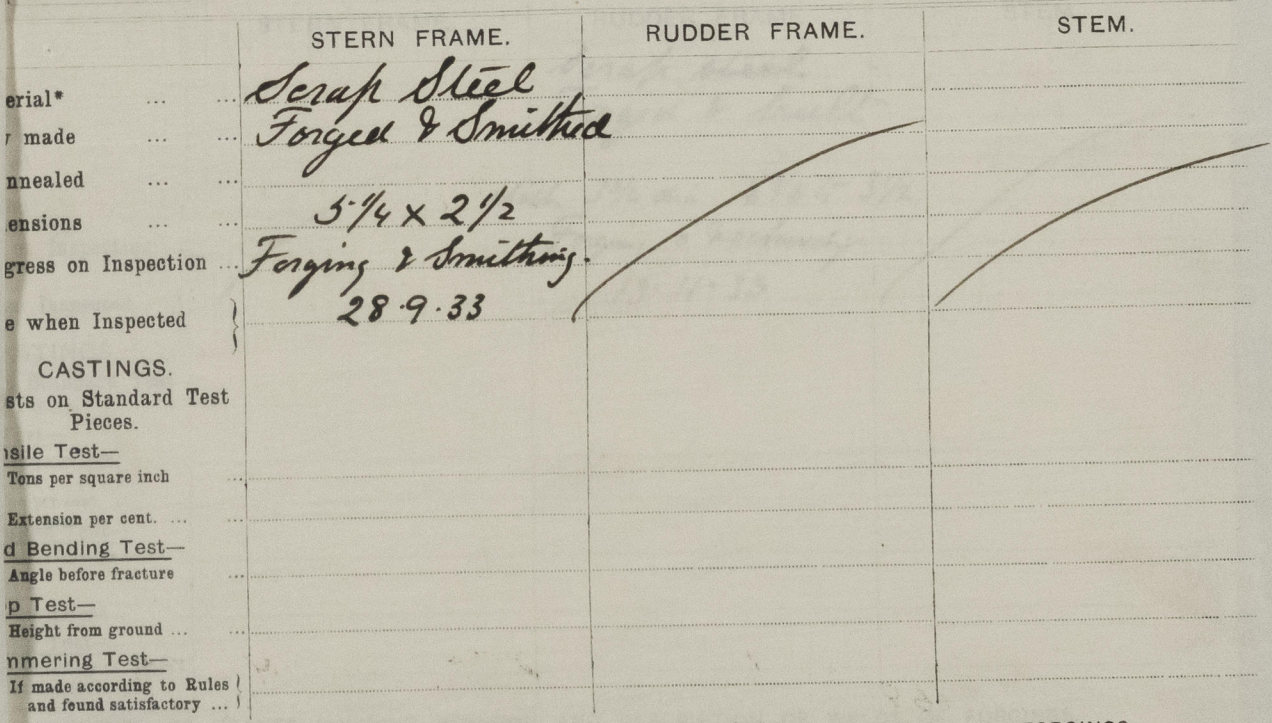 STERN FRAME. RUDDER FRAME. STEM.
erial* ... ... Scrap Steel
made ... ... Forged & Smithed
nnealed ... ...
ensions ... ... 5 1/4 x 2 1/2
gress on Inspection ... Forging & Smithing.
e when Inspected } 28.9.33
CASTINGS.
sts on Standard Test
Pieces.
nsile Test—
Tons per square inch
Extension per cent. ... ...
d Bending Test—
Angle before fracture ...
p Test—
Height from ground ... ...
mmering Test—
If made according to Rules }
and found satisfactory ...